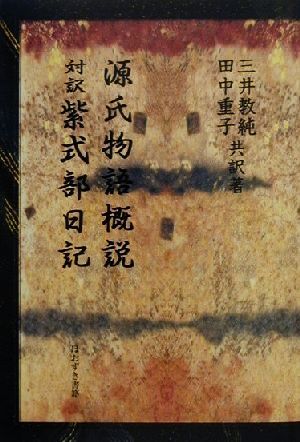 三井教純
田中重子 共訳著
源氏物語概説
対訳 紫式部日記
ほおずき書籍